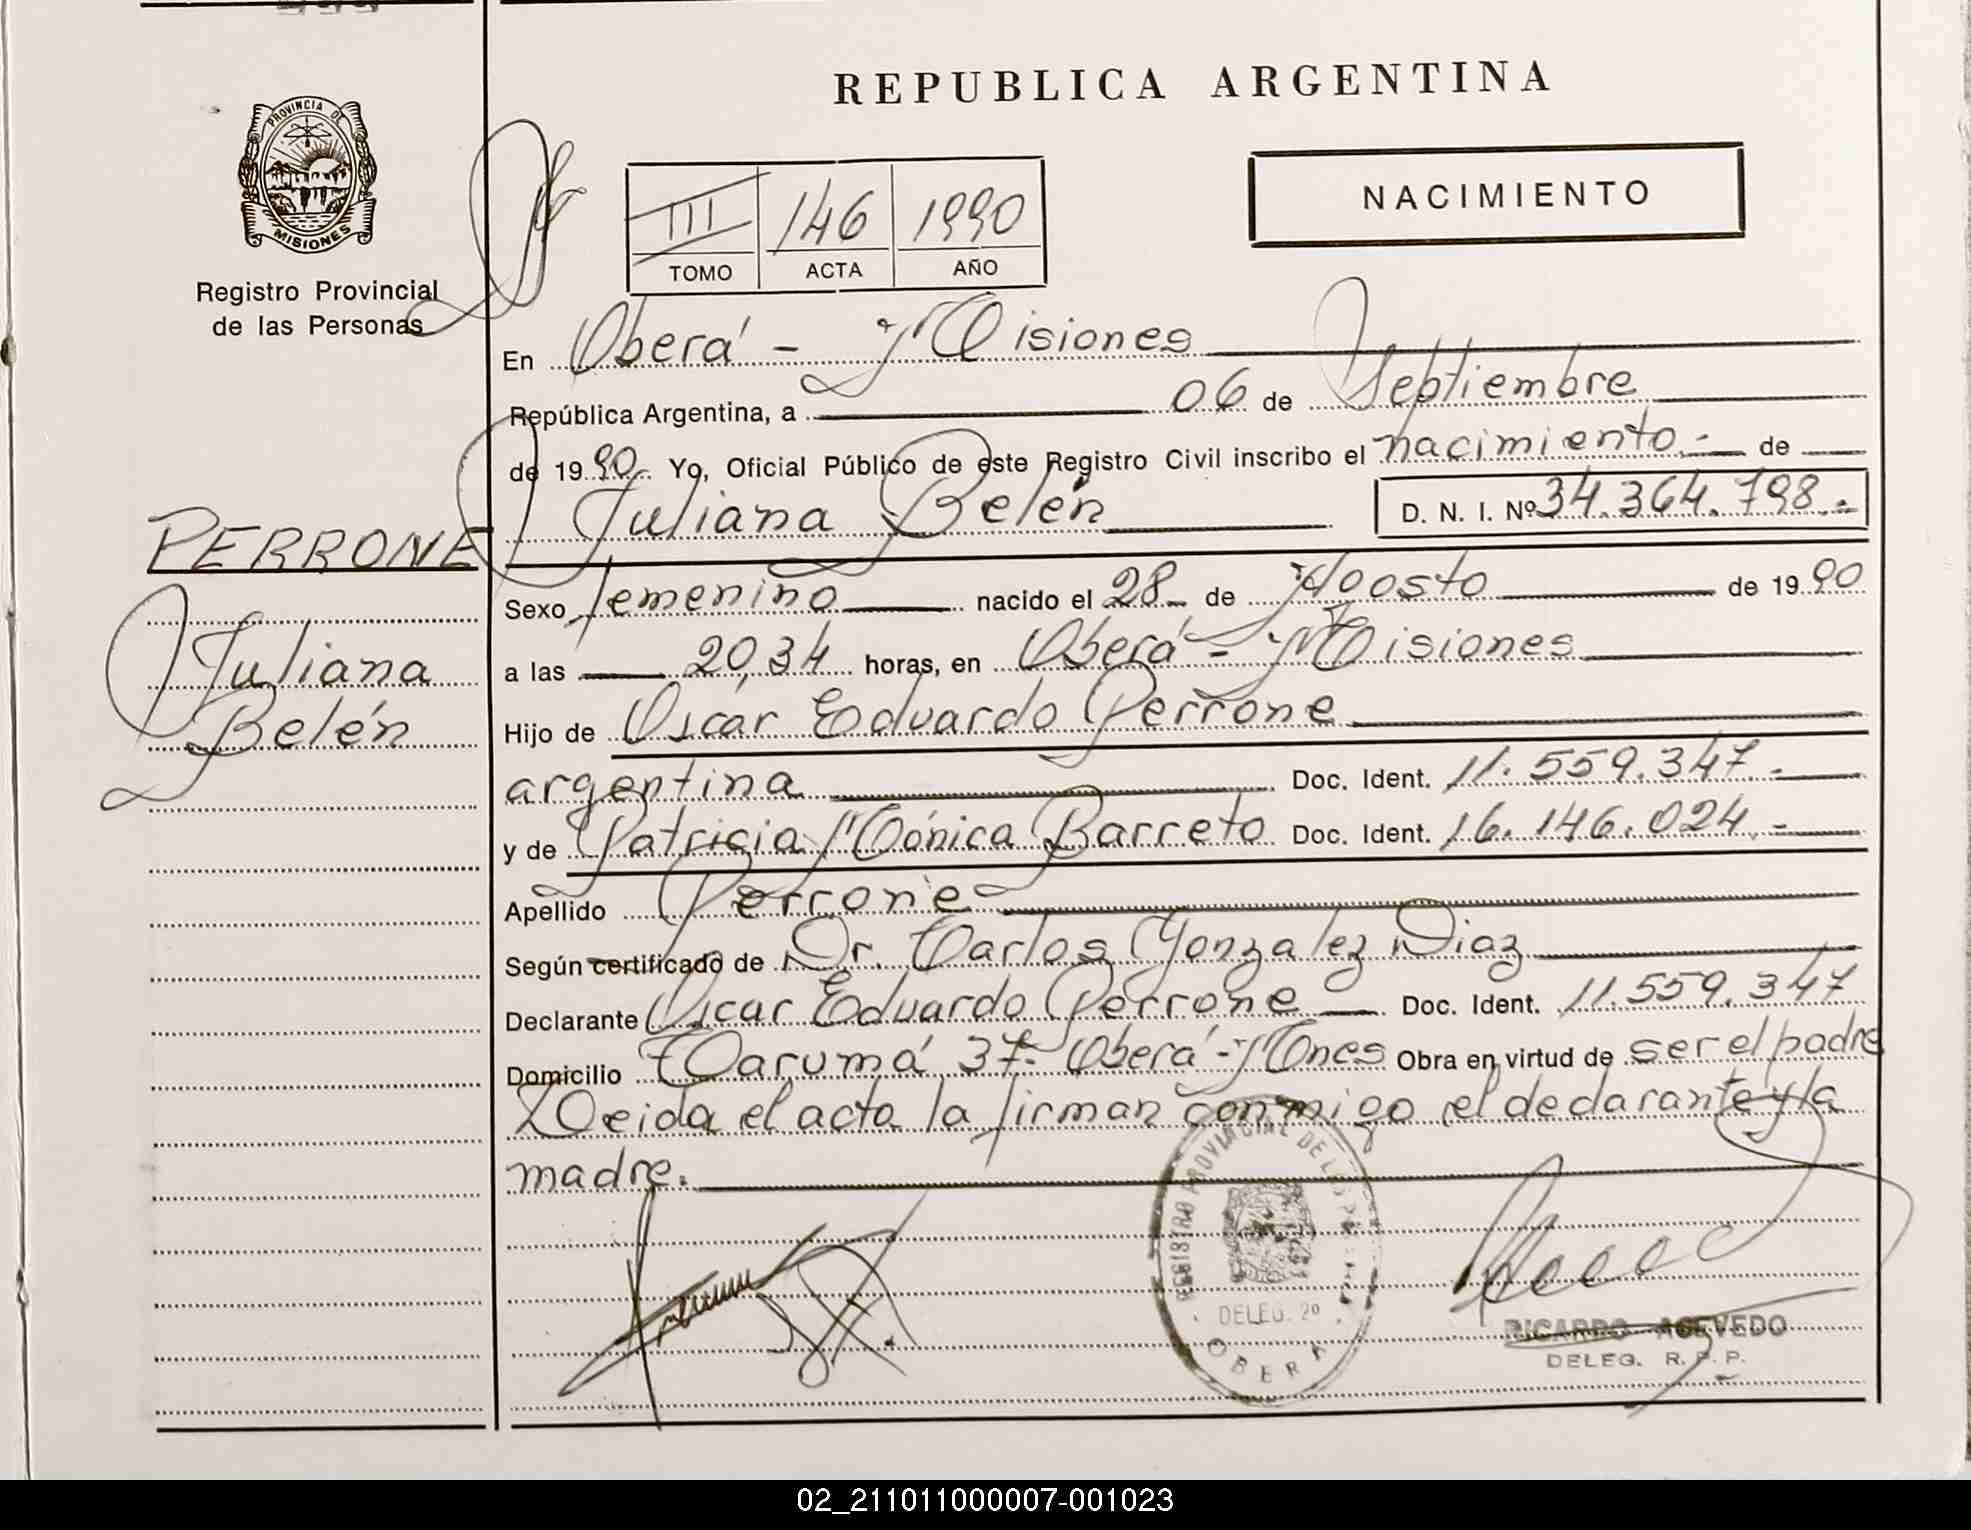 REPUBLICA ARGENTINA
PROVINCIA DE
MISIONES
Registro Provincial
de las Personas
NACIMIENTO
III 146 1990
TOMO ACTA AÑO
En Oberá - Misiones
República Argentina, a 06 de Septiembre
de 1990. Yo, Oficial Público de este Registro Civil inscribo el nacimiento.- de
Juliana Belén D. N. I. Nº 34.364.798.-
PERRONE
Juliana
Belén
Sexo femenino nacido el 28 de Agosto de 1990
a las 20,34 horas, en Oberá - Misiones
Hijo de Oscar Eduardo Perrone
argentina Doc. Ident. 11.559.347.-
y de Patricia Mónica Barreto Doc. Ident. 16.146.024.-
Apellido Perrone
Según certificado de Dr. Carlos Gonzalez Diaz
Declarante Oscar Eduardo Perrone Doc. Ident. 11.559.347
Domicilio Tarumá 37- Oberá - Mnes Obra en virtud de ser el padre
Leida el acta la firman conmigo el declarante y la
madre.
REGISTRO PROVINCIAL DE LAS
DELEG. 2º
OBERA
RICARDO ACEVEDO
DELEG. R. P. P.
02_211011000007-001023